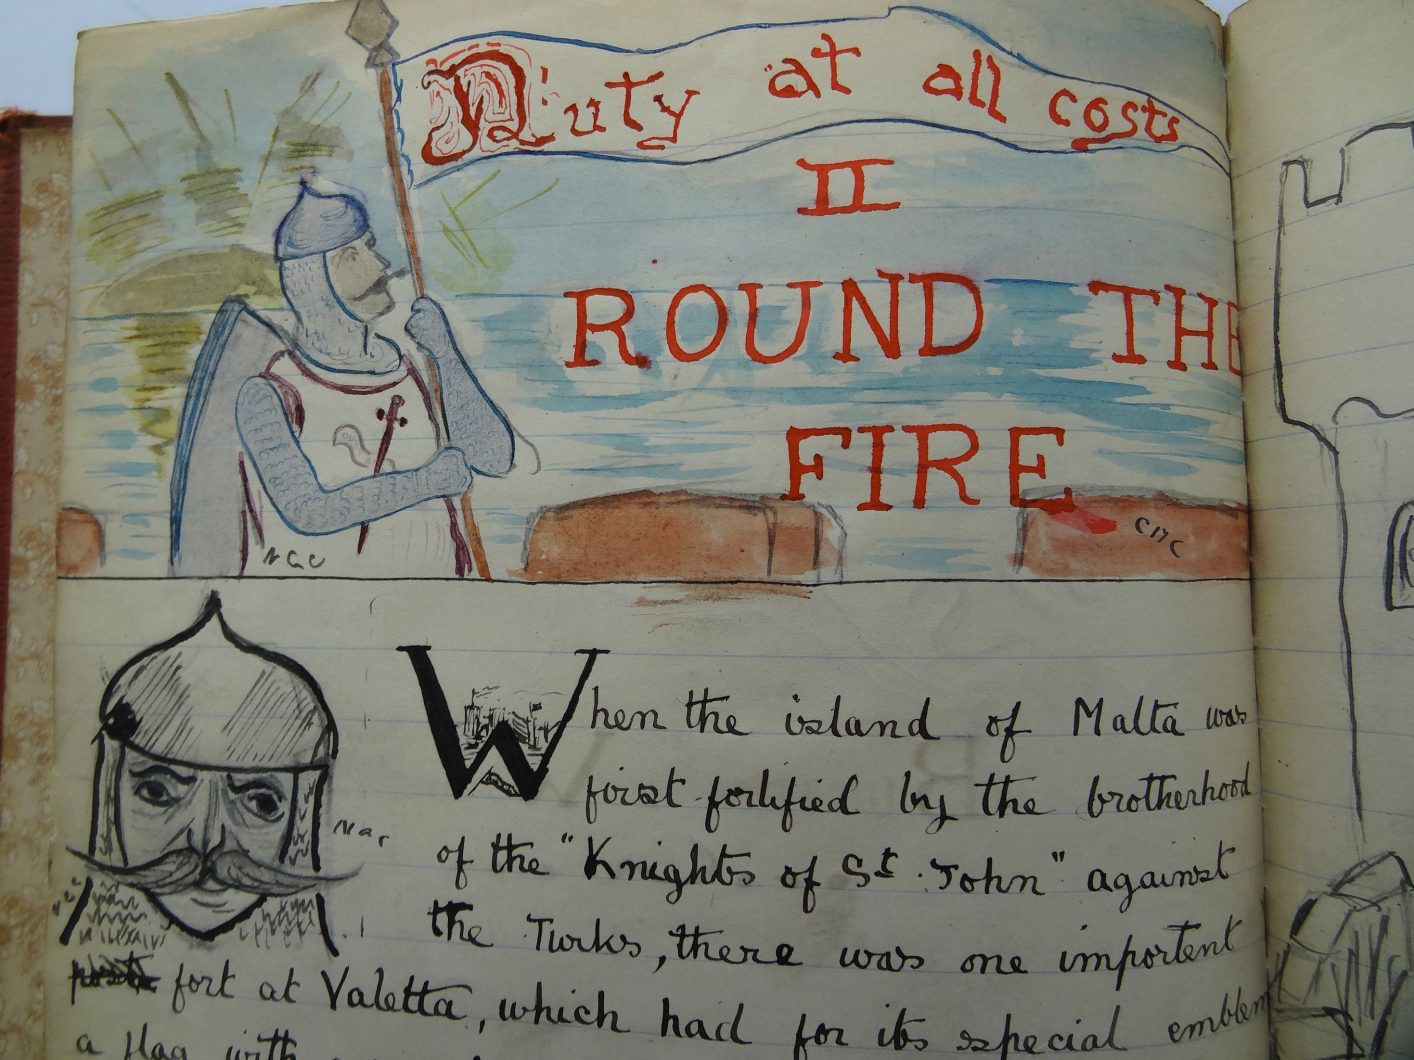 Duty at all costs
II
ROUND THE
FIRE
CMC
When the island of Malta was
first fortified by the brotherhood
of the "Knights of St. John" against
the Turks, there was one importent
fort at Valetta, which had for its special emblem
a flag with